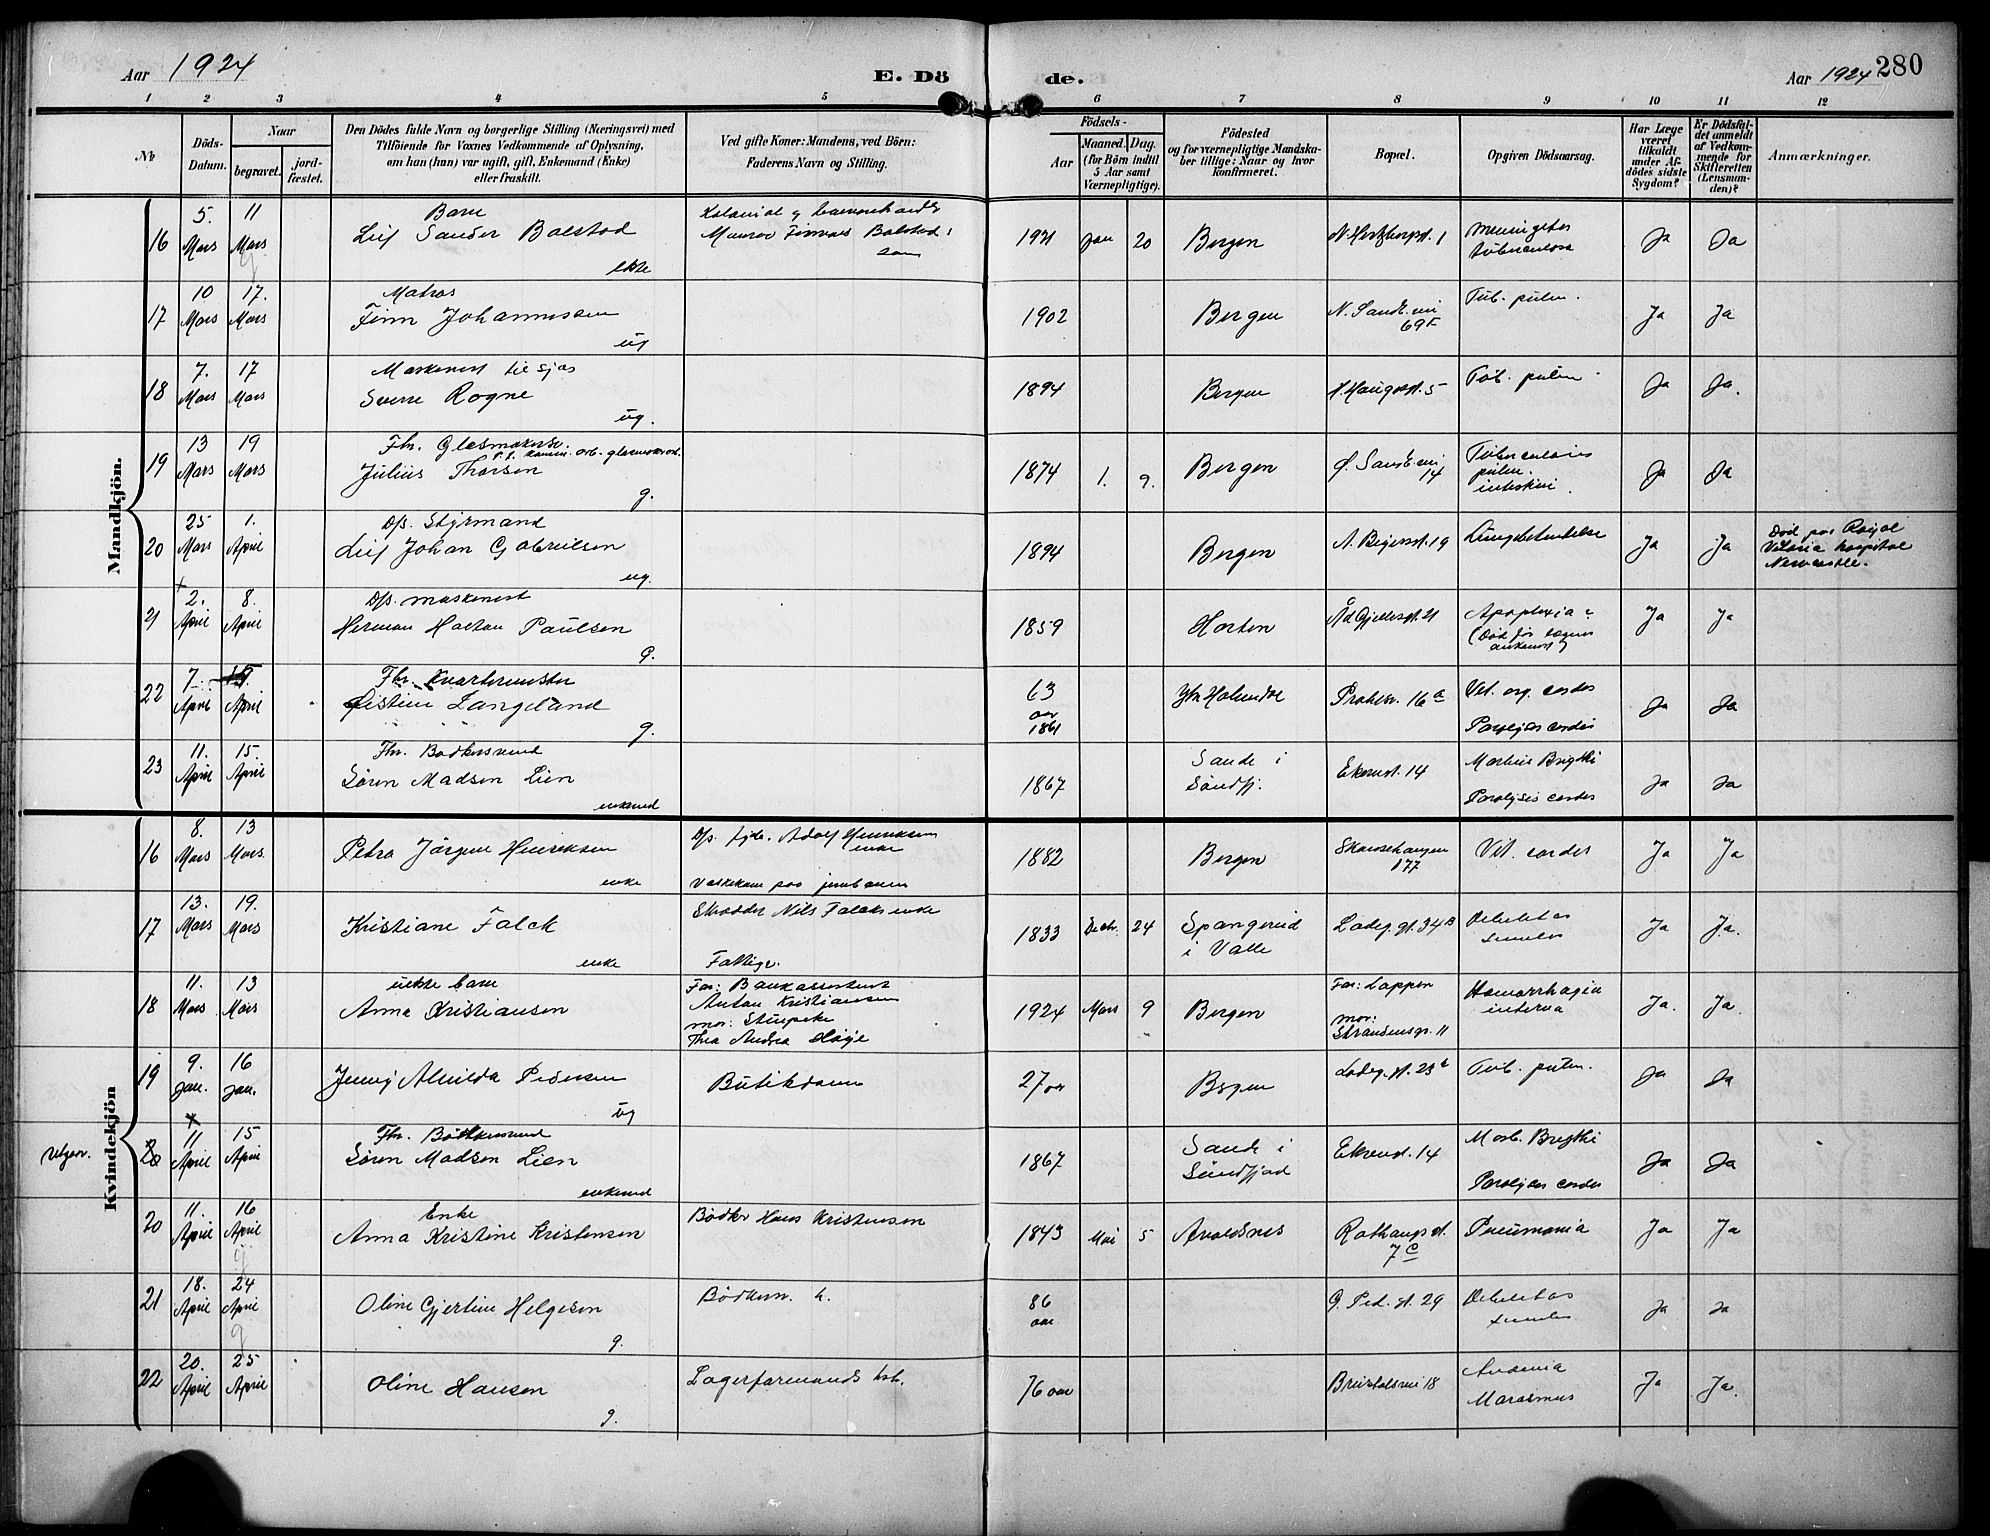 Aar 1924
E. Dö de.
Aar 1924 280
1 2 3 4 5 6 7 8 9 10 11 12
No
Döds-Datum.
Naar
begravet.
jord-fæstet.
Den Dödes fulde Navn og borgerlige Stilling (Næringsvei) med
Tilföiende for Voxnes Vedkommende af Oplysning,
om han (hun) var ugift, gift, Enkemand (Enke)
eller fraskilt.
Ved gifte Koner: Mandens, ved Börn:
Faderens Navn og Stilling.
Födsels-
Aar
Maaned. Dag.
(for Börn indtil
5 Aar samt
Værnepligtige).
Födested
og for værnepligtige Mandska-
ber tillige: Naar og hvor
konfirmeret.
Bopæl.
Opgiven Dödsaarsag.
Har Læge
været
tilkaldt
under Af-
dödes sidste
Sygdom?
Er Dödsfal-
det anmeldt
af Vedkom-
mende for
Skifteretten
(Lensman-
den)?
Anmærkninger.
Mandkjön.
16 5. Mars 11 Mars
Barn
Leif Sander Bolstad
ekte
Bolstad
Jan 20 Bergen
tuberculosa
Ja Ja
17 10 Mars 17. Mars
Matros
Finn Johannessen
ug
1902 Bergen
69F
Tub. pulm.
Ja Ja
18 7. Mars 17 Mars
Maskinist til sjøs
Sverre Rogne
ug.
1894 Bergen
H. Haugesgt. 5
Tub. pulm.
Ja Ja.
19 13 Mars 19 Mars
Fhr. Glasmakersv.
Julius Thorsen
g.
1874 1. 9. Bergen
14
Tuberculosis
pulm.
Ja Ja
20 25 Mars 1. April
D/s. Styrmand
Leif Johan Gabrielsen
ug.
1894 Bergen
19
Lungebetendelse
Ja Ja
Død paa Royal
Victoria hospital
Newcastle.
21 2. April 8. April
D/s. maskinist
Herman Paulsen
g.
1859 Horten
21
Apoplexia
Ja Ja
22 7. April April
Fhr. Kvartermester
Langeland
g.
63 aar 1861
16a
Vit. org. cordis
Paralysis cordis
Ja Ja
23 11. April 15. April
Fhr. Bødkersvend
Søren Madsen Lien
enkemd
1867
Sande i
Søndfj.
Ekrengt. 14
Morbus Brigthi
Paralysis cordis
Ja Ja
Kvindekjön
16 8. Mars 13 Mars.
Petra Jørgine Henriksen
enke
Adolf Henriksens
enke
1882 Bergen
177
Vit. cordis
Ja Ja
17 13. Mars 19. Mars
Kristiane Falck
enke
Skrædder Nils Falcks enke
Fattige.
1833 Decbr. 24
i Valle
Ladeg. gt. 34B
Debilitas
senilis
Ja Ja.
18 11. Mars 13 Mars
uekte barn
Anna Kristiansen
Far: Bankassistent
Anton Kristiansen
mor:
Thea Andrea
1924 Mars 9 Bergen
Far: Lappen
mor:
11
Hæmorrhagia
interna
Ja. Ja.
19 9. Jan. 16 Jan.
Jenny Alvilda Pedersen
ug
Butikdame
27 aar Bergen
Ladeg. gt. 23b
Tub. pulm.
Ja Ja
utgaar.
20 11 April 15 April
Fhr. Bødkersvend
Søren Madsen Lien
enkemd
1867
Sande i
Søndfjord
Ekrengt. 14
Morb. Brigthi
Paralysis cordis
Ja Ja
20 11. April 16 April
Enke
Anna Kristine Kristensen
Bødker Hans Kristensen
1843 Mai 5 Avaldsnes
7c
Pneumonia
Ja Ja
21 18. April 24 April
Oline Gjertine Helgesen
g.
Bødkerm. h.
86 aar
G. Ped. gt. 29
Debilitas
senilis
Ja Ja
22 20. April 25 April
Oline Hansen
g.
Lagerformands hst.
76 aar
18
Anæmia
Marasmus
Ja Ja.